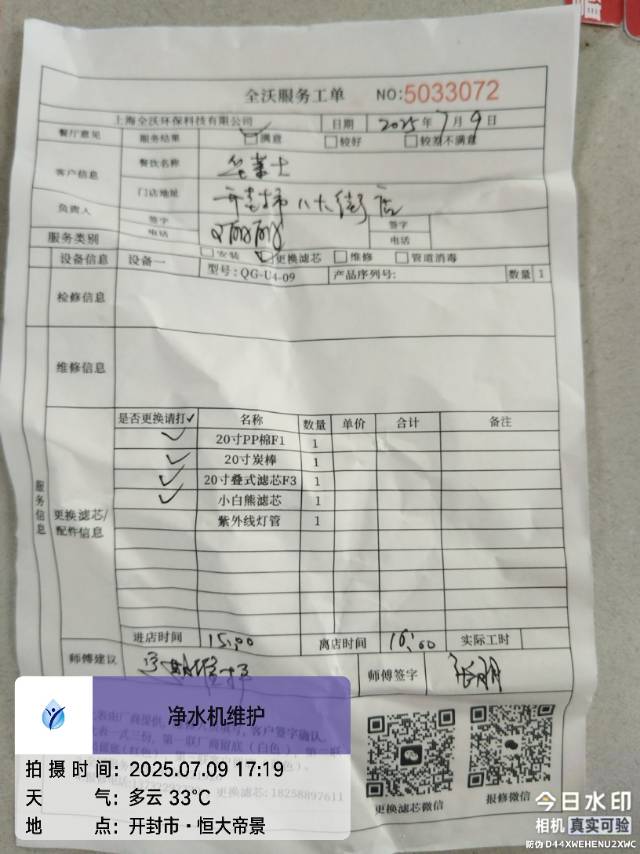 全沃服务工单 NO:5033072
上海全沃环保科技有限公司 日期 2025年7月9日
餐厅意见 服务结果 满意 较好 较差不满意
客户信息 餐饮名称 华莱士
门店地址 开封市八大街店
负责人 签字 电话 签字 电话
服务类别 安装 更换滤芯 维修 管道消毒
设备信息 设备一 型号:QG-U4-09 产品序列号: 数量 1
检修信息
维修信息
服务信息
更换滤芯/配件信息
是否更换请打✓ 名称 数量 单价 合计 备注
✓ 20寸PP棉F1 1
✓ 20寸炭棒 1
✓ 20寸叠式滤芯F3 1
✓ 小白熊滤芯 1
紫外线灯管 1
进店时间 15:00 离店时间 16:00 实际工时
师傅建议 定期维护 师傅签字 张朋
客户签字确认
表一式三份,第一联厂商留底(白色),第二联
更换滤芯:18258897611
更换滤芯微信 报修微信
净水机维护
拍摄时间:2025.07.09 17:19
天气:多云 33℃
地点:开封市·恒大帝景
今日水印
相机 真实可验
防伪 D44XWEHENU2XWC